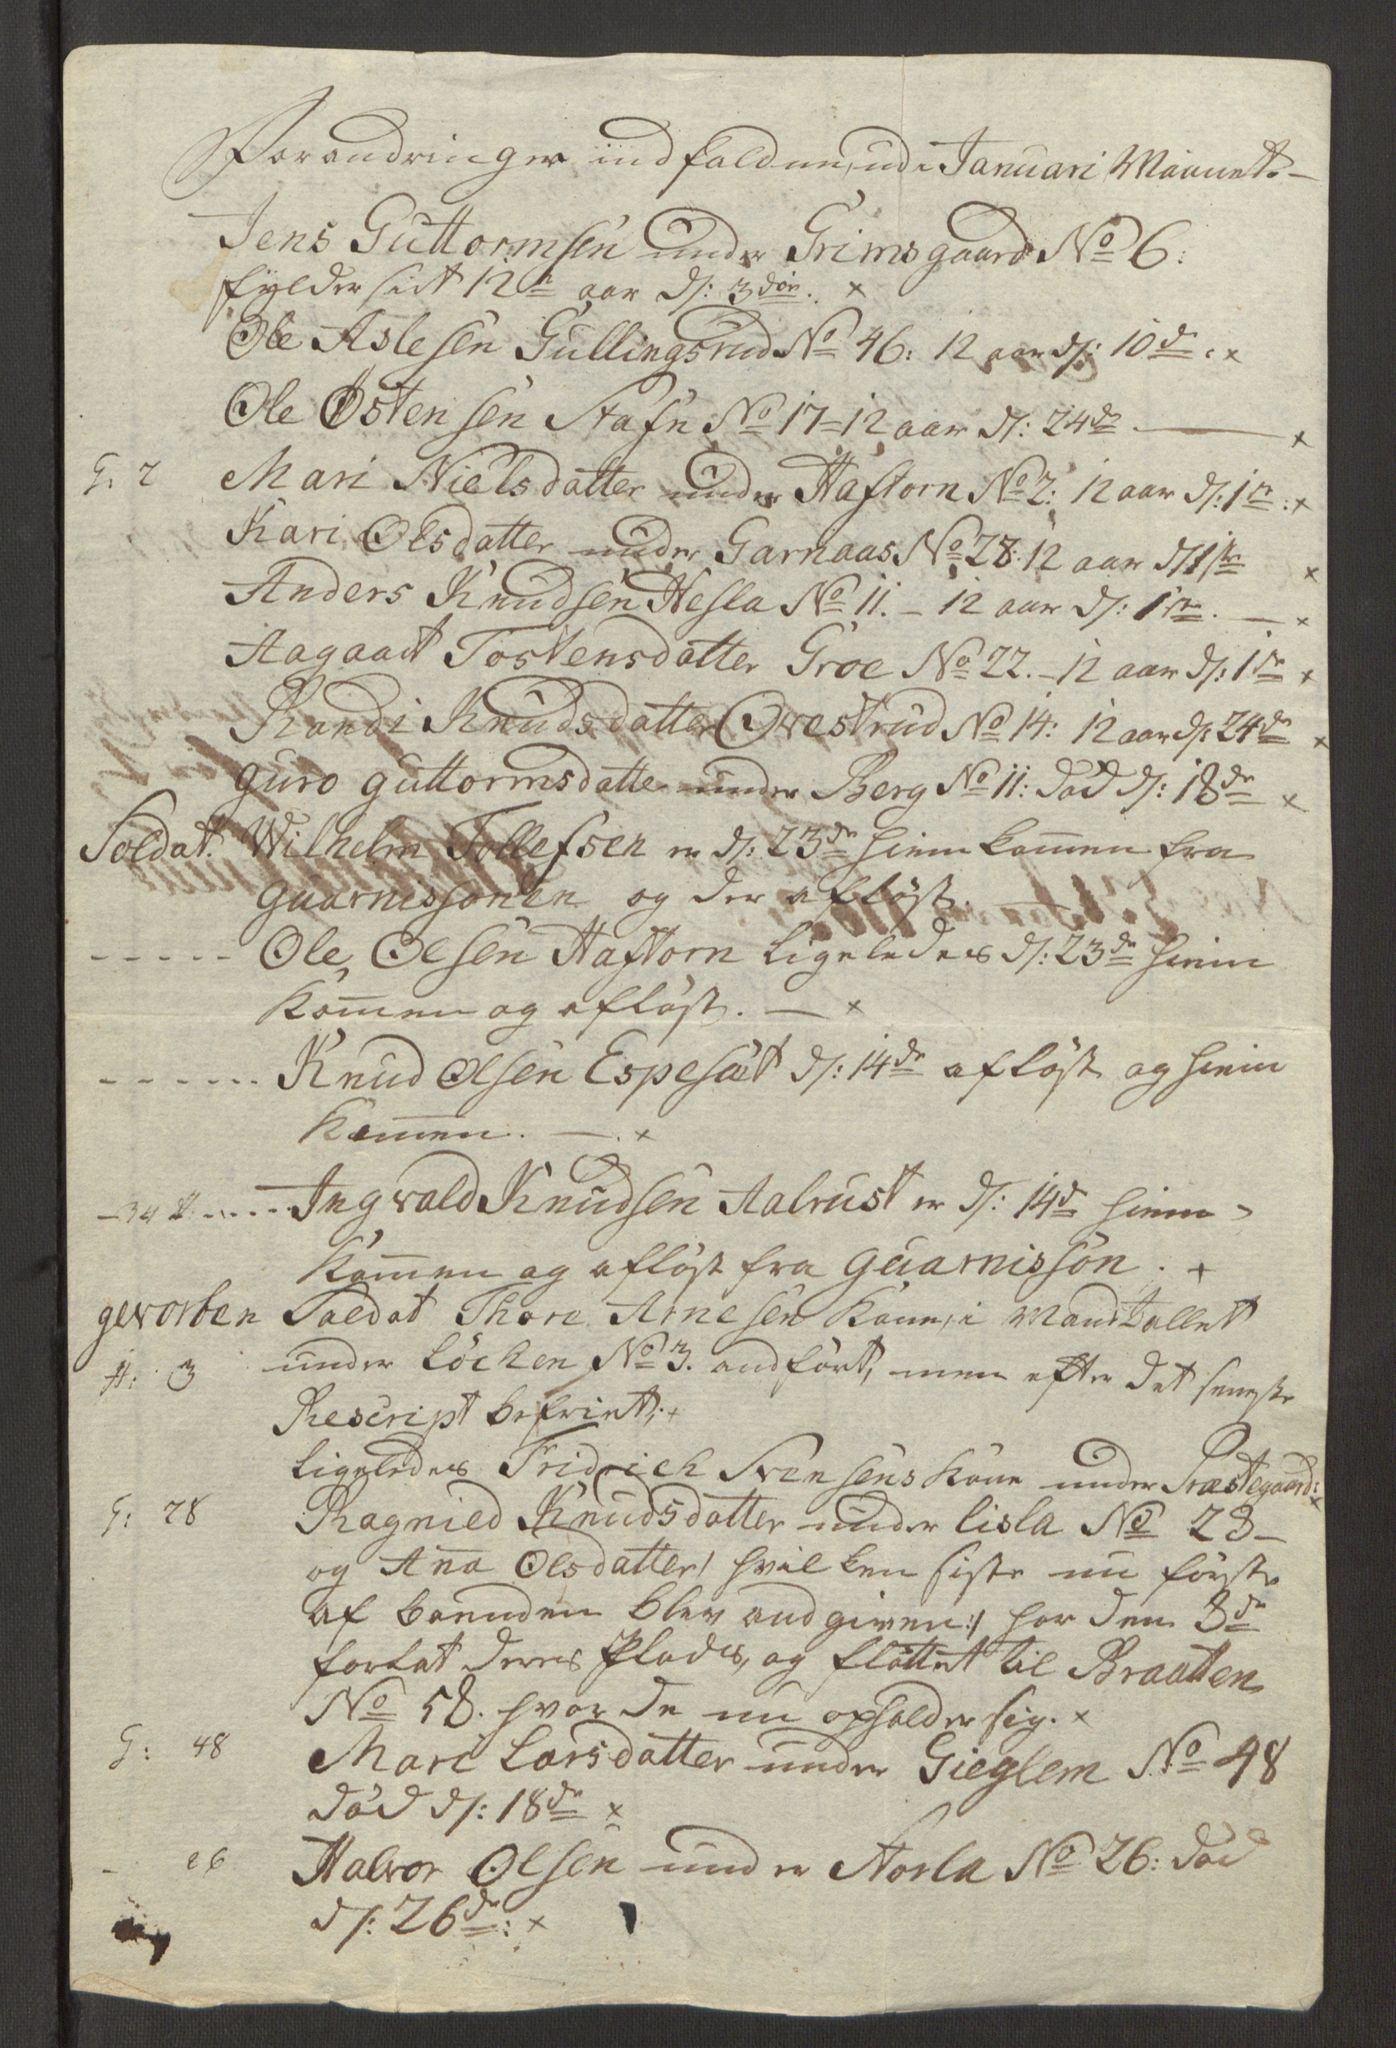 Forandringer indfaldne, udi Januari Maanet. –
Jens Guttormsen under Grimsgaard No 6:
fylder sit 12te aar d/: 3die. x
Ole Aslesen Gullingsrud No 46: 12 aar d/: 10de. x
Ole Østensen Stafn No 17 – 12 aar d/: 24de. — x
G. 2 Mari Nielsdatter under Haftorn No 2: 12 aar d/: 1te: x
Kari Olsdatter under Garnaas No 28: 12 aar d/ 1ste x
Anders Knudsen Hesla No 11. – 12 aar d/: 1ste. — x
Aagaat Tostensdatter Groe No 22. – 12 aar d/: 1ste x
Randi Knudsdatter Ovestrud No 14: 12 aar d/: 24de x
Guro Guttormsdatter under Berg No 11: død d/: 18de x
Soldat. Wilhelm Tollefsen er d/: 23de hiem kommen fra
Guarnissonen og der afløst.
- - - - - Ole Olsen Haftorn ligeledes d/: 23de hiem
kommen og afløst. — x
- - - - - - Knud Olsen Espesæt d/: 14de afløst og hiem
kommen. — x
Ingvald Knudsen Aalrust er d/: 14de hiem-
kommen og afløst fra Guarnisson. +
gevorben Soldat Thore Arnesens Kone, i Mandtallet
H: 3 under Løcken No 3. andført, men efter det seneste
Rescript befriet. +
ligeledes Fridrich Svensens Kone under Præstegaard: x
G: 28 Ragnied Knudsdatter under Lisla No 28 –
og Anna Olsdatter /: hvilken siste nu første
af bonden blev andgiven :/ har den 3de
forlat deres Plads, og fløttet til Braatten
No 58. hvor de nu opholder sig. x
G: 48 Mari Larsdatter under Gieglem No 48
død d/: 18de x
- 26 Halvor Olsen under Norla No 26: død
d/: 26de: x